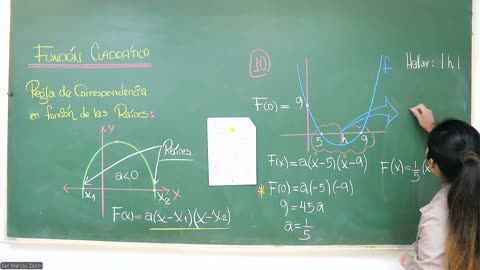 FUNCIÓN CUADRÁTICA
Regla de Correspondencia
en función de las Raíces:
Y
Raíces
a<0
x₁
x₂
X
F(x)=a(x-x₁)(x-x₂)
10
F(0)=9
f
5
h
9
F(x)=a(x-5)(x-9)
* F(0)=a(-5)(-9)
9=45a
a=1/5
Hallar: |h|
F(x)=1/5(x
San Marcos Zoom